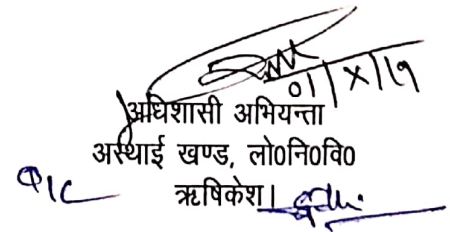 01/X/19
अधिशासी अभियन्ता
अस्थाई खण्ड, लो०नि०वि०
ऋषिकेश।